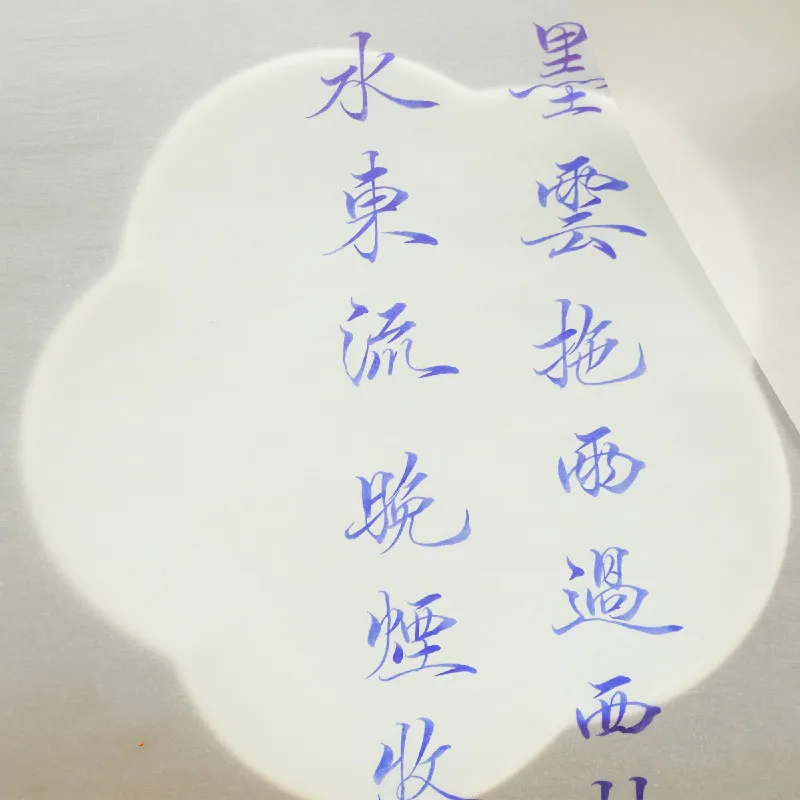 墨雲拖雨過西
水東流晚煙收